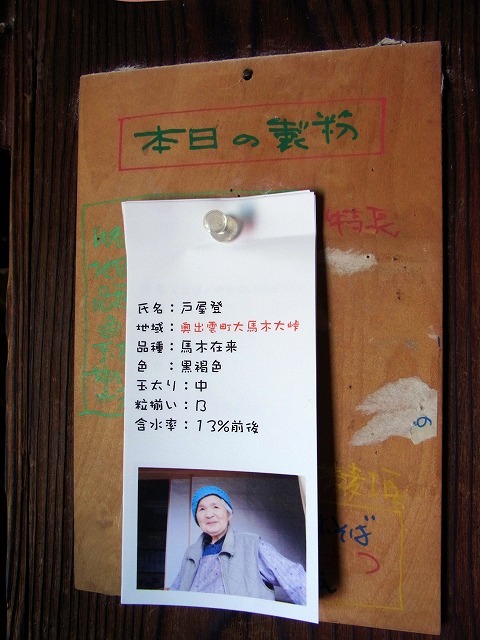 本日の製粉
特長
氏名：戸屋登
地域：奥出雲町大馬木大峠
品種：馬木在来
色　：黒褐色
玉太り：中
粒揃い：B
含水率：13%前後
そば
つ